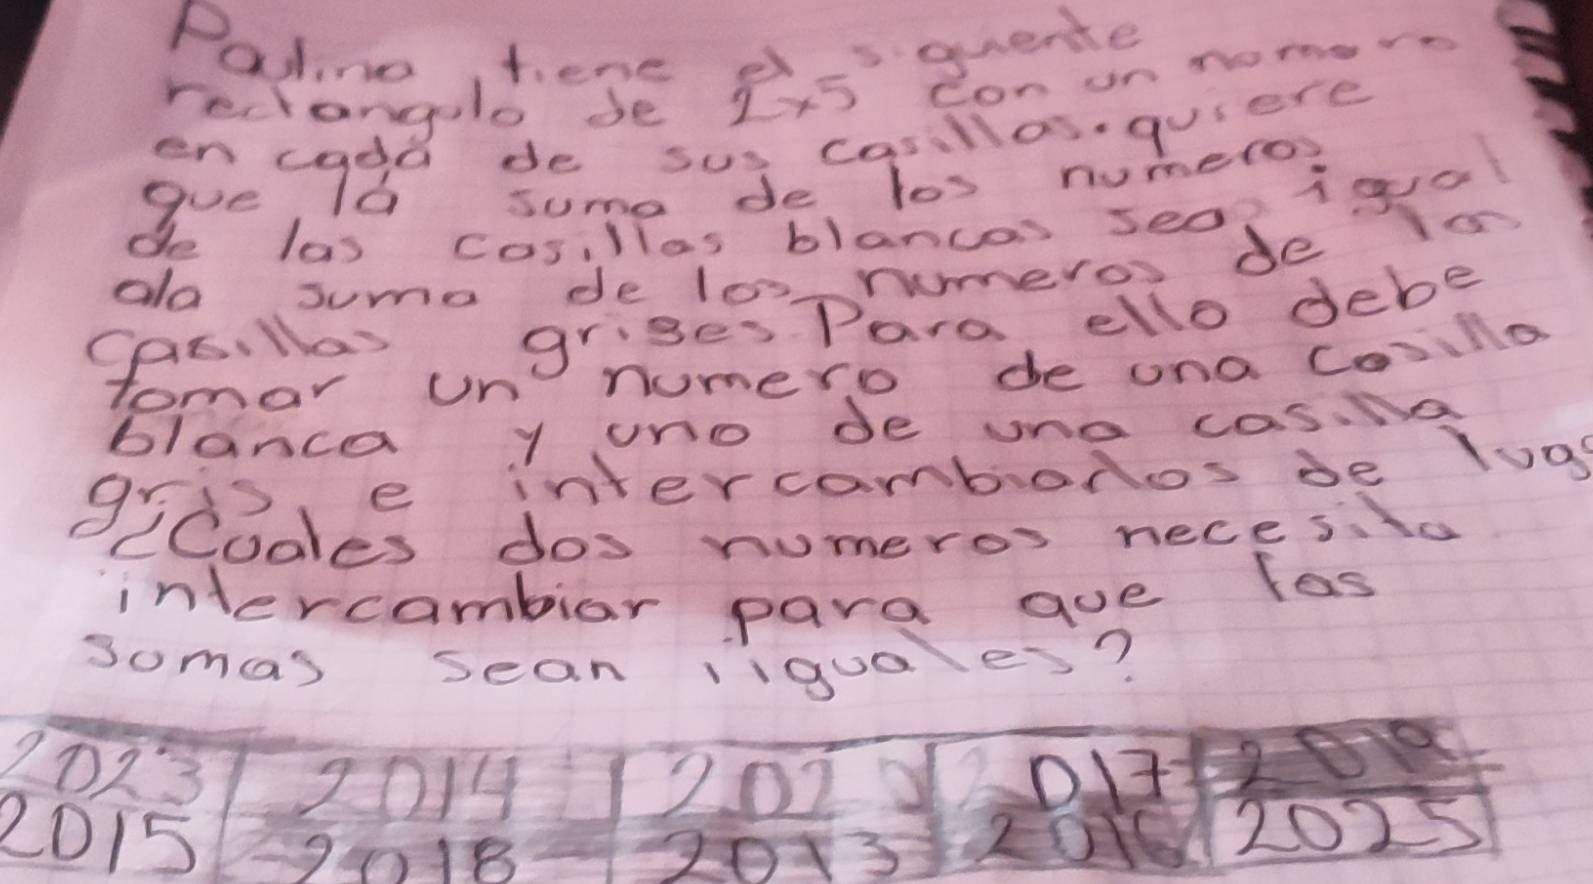 Paulina, tiene el siguente
rectangulo de 2x5 con un nomero
en cada de sus casillas. quiere
que la suma de los numeros
de las casillas blancas sea igual
ala suma de los numeros de las
casillas grises. Para ello debe
tomar un numero de una casilla
blanca y uno de una casilla
gris, e intercambiarlos de
¿Cuales dos numeros necesita
intercambiar para que las
somas sean iiguales?
2023 2014 2017 2019
2015 2018 2013 2016 2025